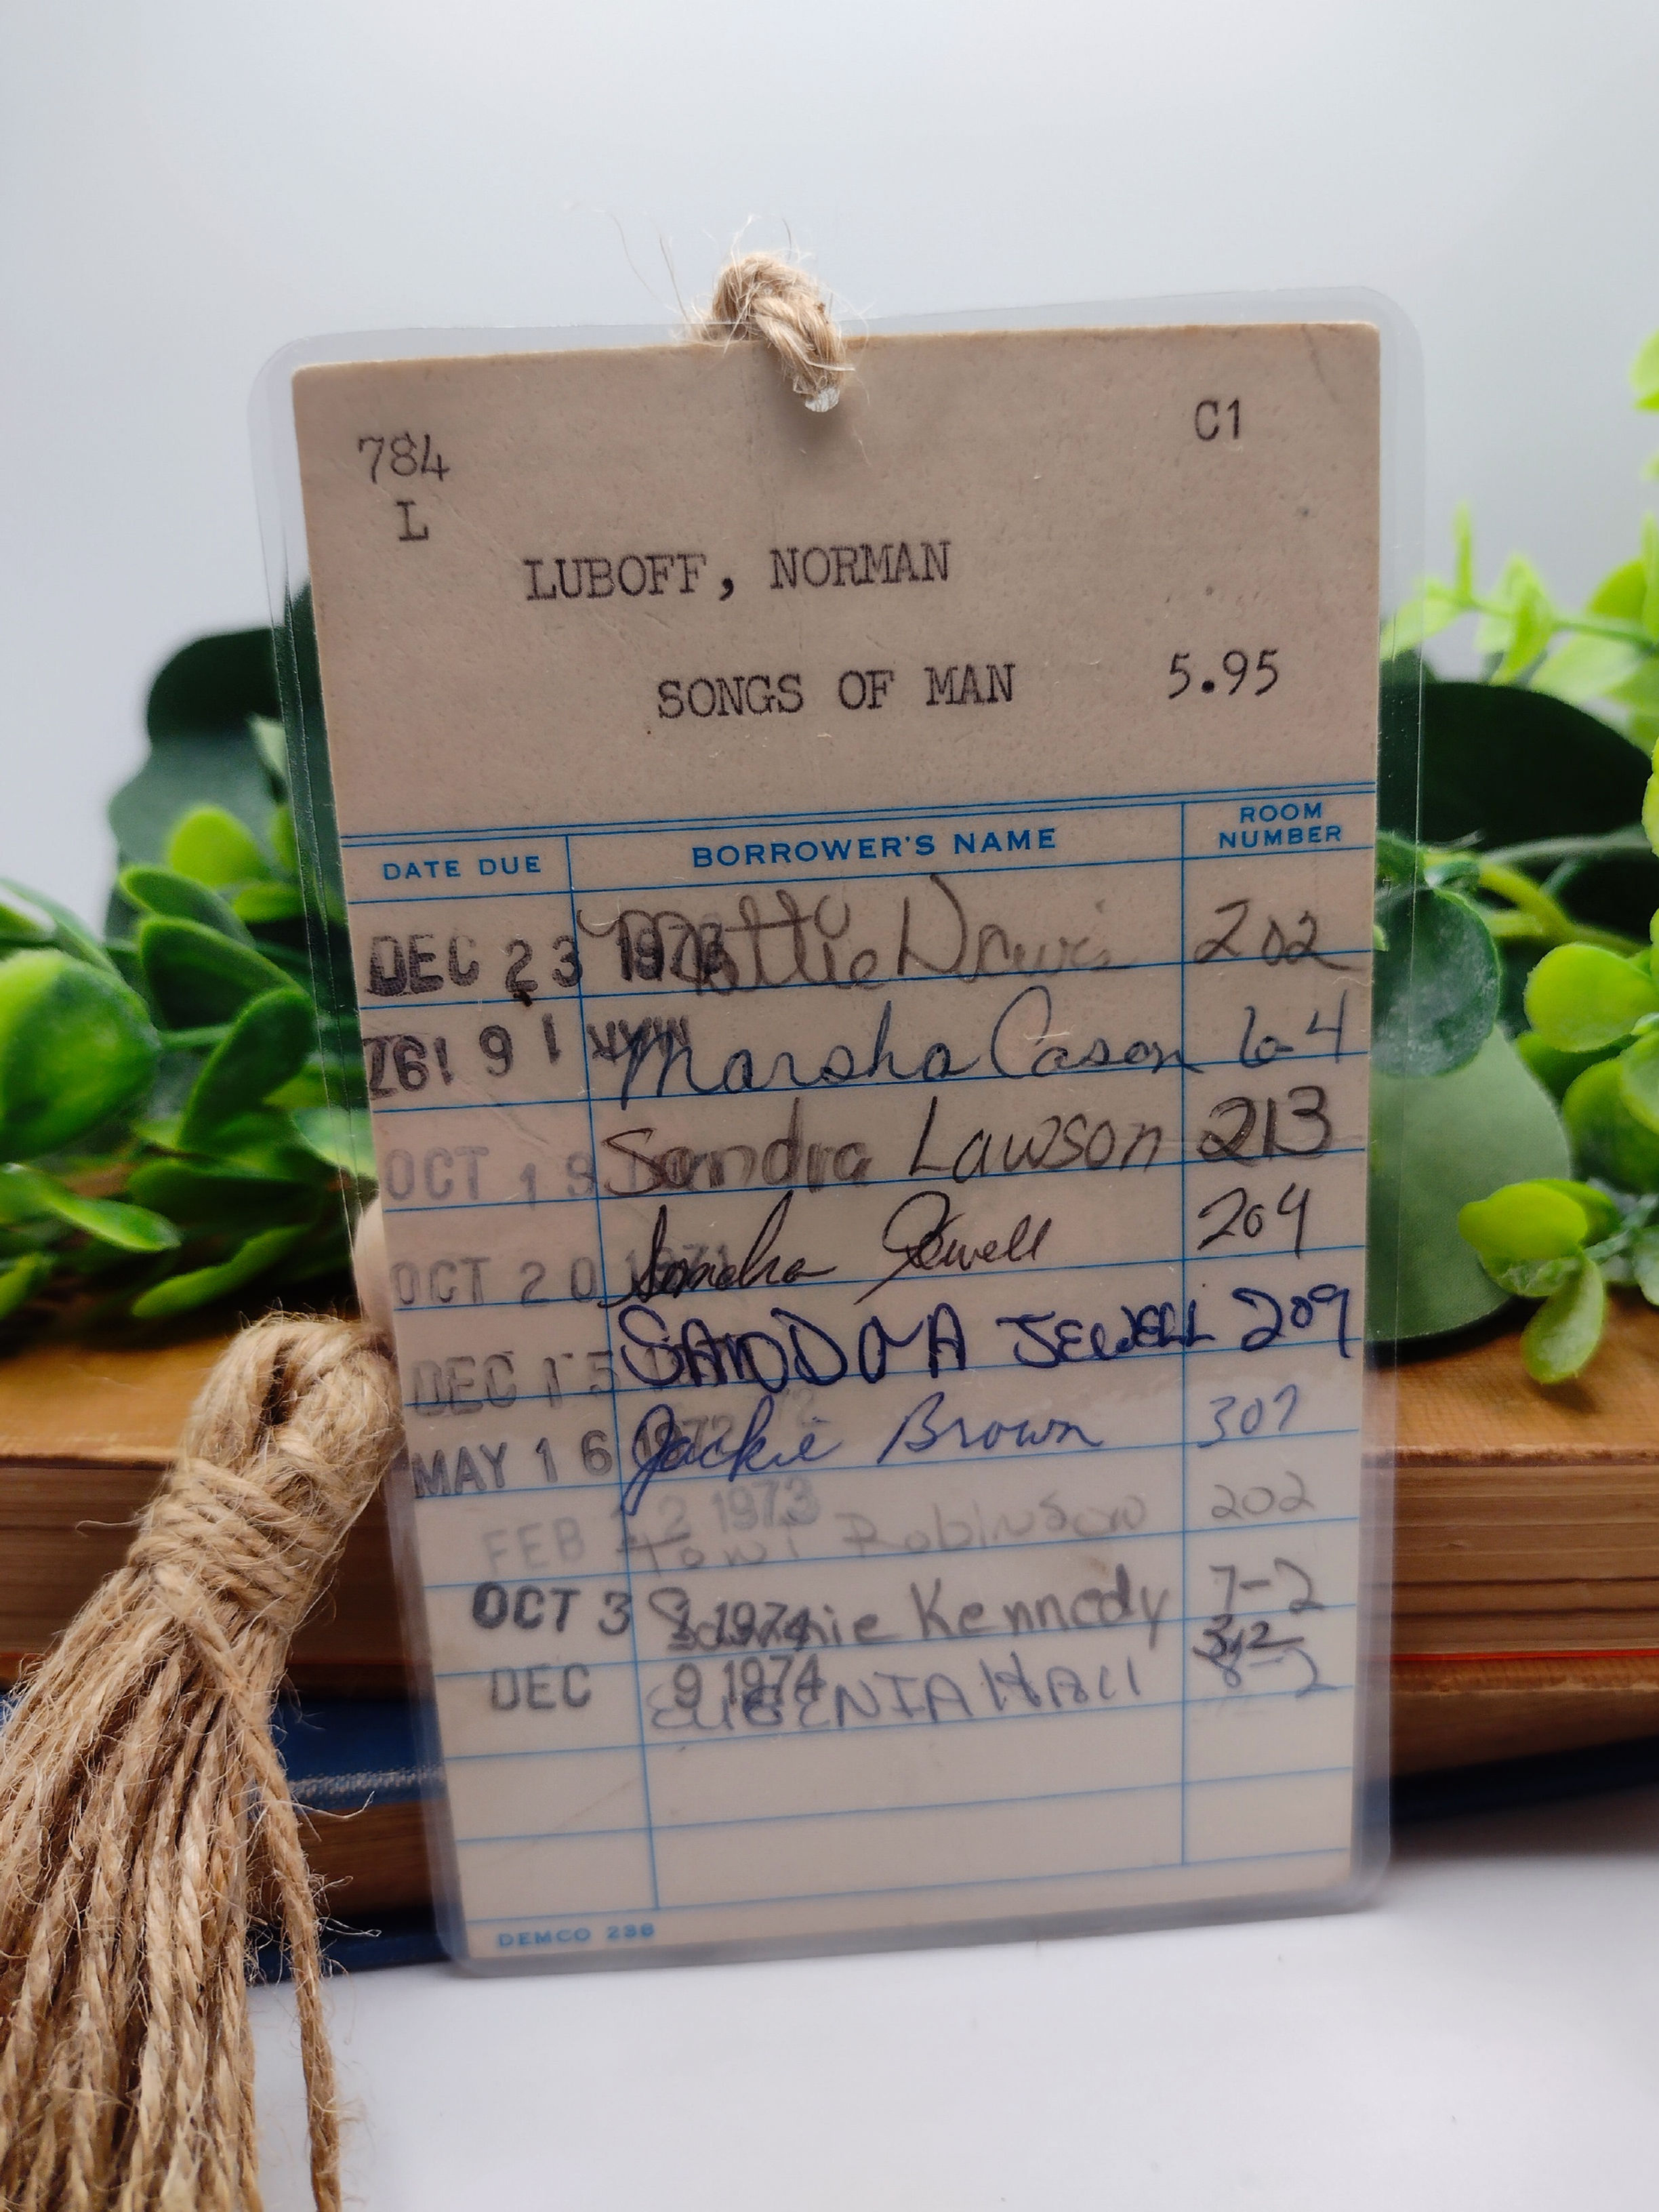 784 C1
L
LUBOFF, NORMAN
SONGS OF MAN 5.95
DATE DUE BORROWER'S NAME ROOM NUMBER
DEC 23 Mattie Davis 202
MAY 1 6 197 Marsha Cason 6-4
OCT 1 9 Sandra Lawson 213
OCT 2 0 1971 Sandra Jewell 209
DEC 1 5 SANDRA JEWELL 209
MAY 1 6 1972 Jackie Brown 307
FEB 2 1973 Robinson 202
OCT 3 1 1974 Kennedy 7-2
DEC 9 1974 EUGENIA HAll 8-2
DEMCO 236